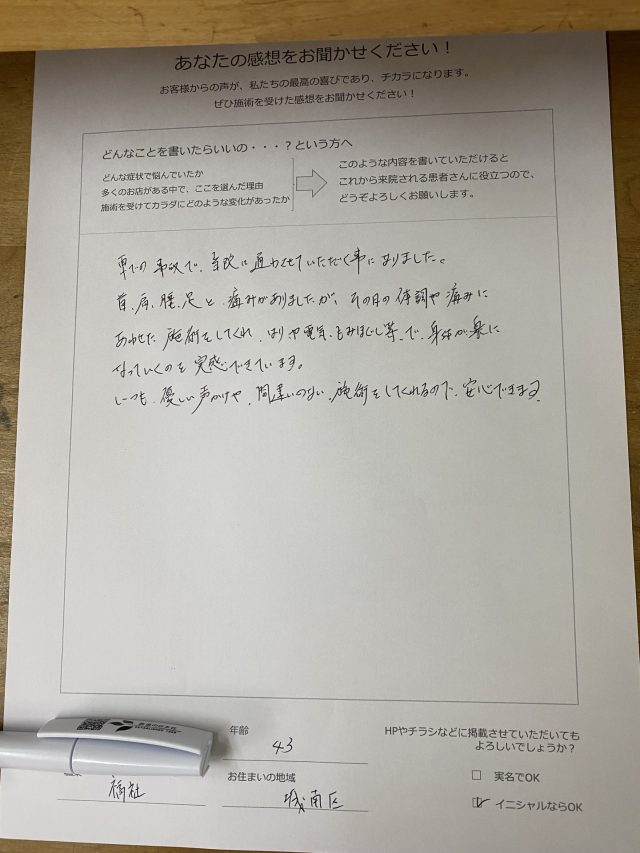 あなたの感想をお聞かせください！
お客様からの声が、私たちの最高の喜びであり、チカラになります。
ぜひ施術を受けた感想をお聞かせください！
どんなことを書いたらいいの・・・？という方へ
どんな症状で悩んでいたか
多くのお店がある中で、ここを選んだ理由
施術を受けてカラダにどのような変化があったか
このような内容を書いていただけると
これから来院される患者さんに役立つので、
どうぞよろしくお願いします。
車での事故で、 に通わせていただく事になりました。
首、肩、腰、足と、痛みがありましたが、その日の体調や痛みに
あわせた施術をしてくれ、はりや電気、もみほぐし等、で、身体が楽に
なっていくのを実感できています。
いつも、優しい声かけや、間違いのない、施術をしてくれるので、安心できます。
年齢
43
お住まいの地域
城南区
福祉
HPやチラシなどに掲載させていただいても
よろしいでしょうか？
実名でOK
イニシャルならOK